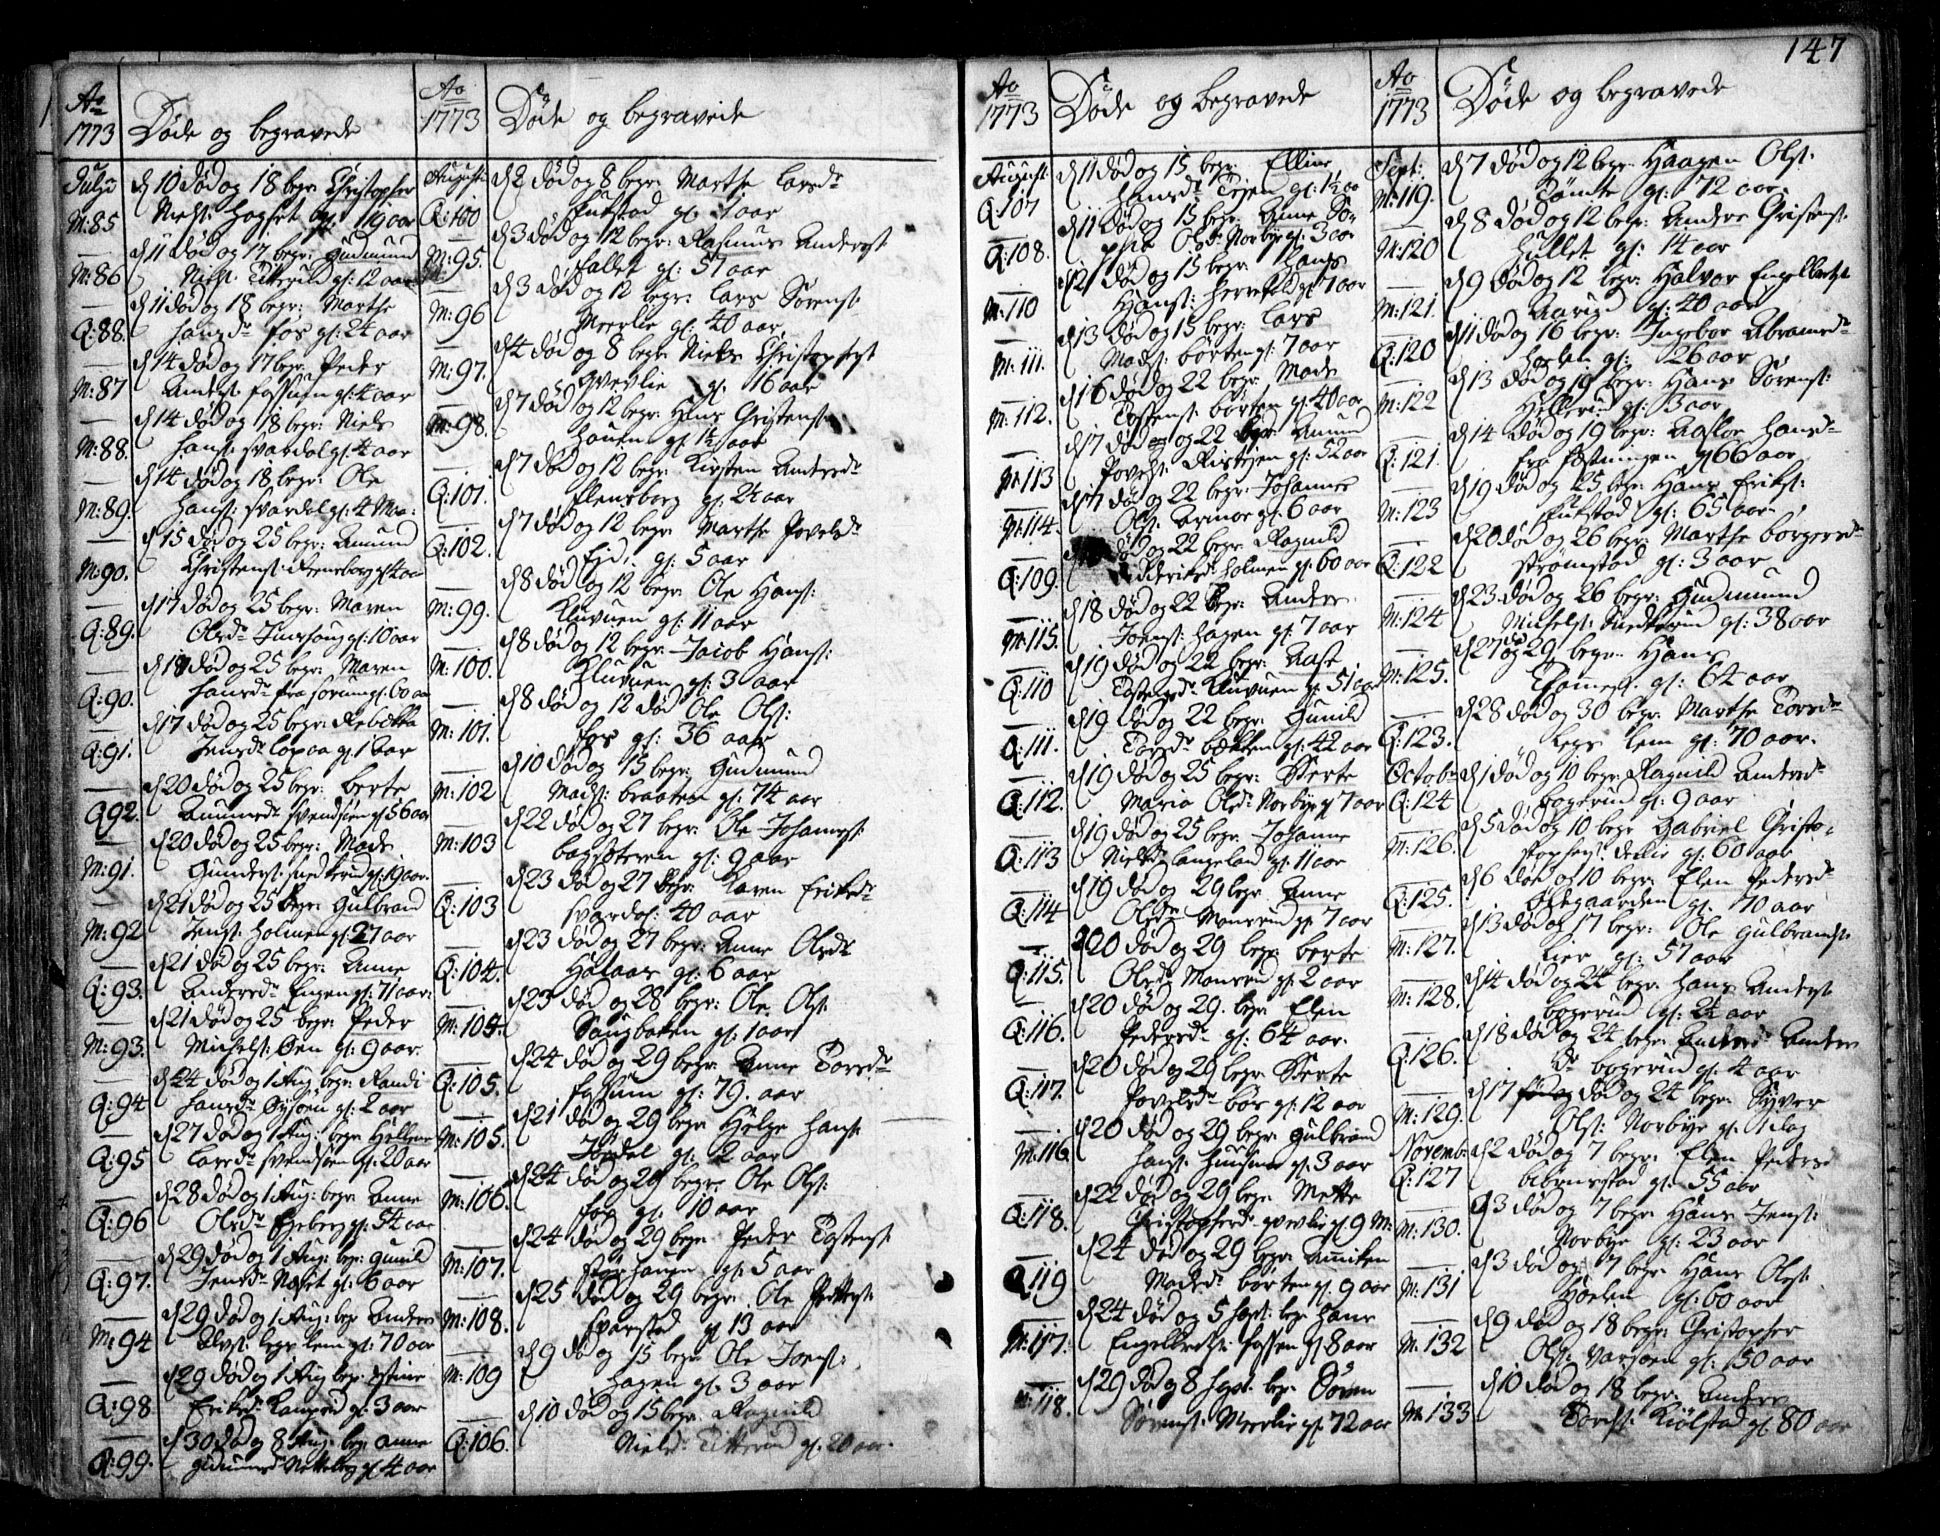 147
Ao 1773
Døde og begravede
Julii
d 10 død og 18 begr: Christopher
M:85
Niels: Hogset gl: 119 aar
d 11 død og 17 begr: Gudmund
M:86
Niels: Titterud gl: 12 aar
d 11 død og 18 begr: Marthe
Q:88.
Hansdr fos gl: 24 aar
d 14 død og 17 begr: Peder
M:87
Anders: fossum gl: 4 aar
d 14 død og 18 begr: Niels
M:88.
Hans: svardal gl: 4 aar
d 14 død og 18 begr: Ole
M:89.
Hans: svardal gl: 4 Maa:
d 15 død og 25 begr: Amund
M:90.
Christens: flensborg gl 4 aar
d 17 død og 25 begr: Maren
Q:89.
Olsdr gl: 10 aar
d 18 død og 25 begr: Maren
Q:90.
Hansdr fra forum gl: 60 aar
d 17 død og 25 begr: Rebekka
Q:91.
Jensdr
d 20 død og 25 begr: berte
Q92.
svendsøen gl 56 aar
d 20 død og 25 begr: Mads
M:91.
Gunders: snedkerud gl: 19 aar.
d 21 død og 25 begr: Gulbrand
M:92
Jens: Holmen gl: 27 aar
d 21 død og 25 begr: Anne
Q:93.
Andersdr Engen gl: 71 aar:
d 21 død og 25 begr: Peder
M:93.
Michels: Øen gl: 9 aar.
d 24 død og 1 Aug: begr: Randi
Q:94
Hansdr gl: 2 aar
d 27 død og 1 Aug: begr Hellene
Q:95
Larsdr svendsøen gl: 20 aar
d 28 død og 1 Aug: begr Anne
Q:96
Olsdr gl: 54 aar
d 29 død og 1 Aug: begr: Gunild
Q:97.
Jensdr Næset gl: 6 aar
d 29 død og 1 Aug: begr Anders
M:94
Elvs: Legs lem gl: 70 aar
d 29 død og 1 Aug begr: Stine
Q:98
Eriksdr gl: 3 aar
d 30 død og 8 Aug: begr Anne
Q:99.
gl 4 aar
Ao 1773
Døde og begravede
August:
d 2 død og 8 begr: Marthe Larsdr
Q:100
Fukstad gl 1 aar
d 3 død og 12 begr: Rasmus Anders:
M:95.
fallet gl: 57 aar
d 3 død og 12 begr: Lars Sørens:
M:96
Meerlie gl: 40 aar,
d 4 død og 8 begr Niels Christophers:
M:97.
gvevlie gl: 16 aar
d 7 død og 12 begr: Hans Christens:
M:98.
Houen gl 1½ aar
d 7 død og 12 begr: Kirsten Andersdr
Q:101.
flensborg gl: 24 aar
d 7 død og 12 begr Marthe Povelsdr
Q:102.
Eid: gl: 5 aar
d 8 død og 12 begr: Ole Hans:
M:99.
Kluvuen gl: 11 aar
d 8 død og 12 begr: Jacob Hans:
M:100.
Kluvuen gl: 3 aar
d 8 død og 12 død Ole Ols:
M:101.
fos gl: 36 aar
d 10 død og 15 begr: Gudmund
M:102
Mads: braaten gl: 74 aar
d 22 død og 27 begr: Ole Johannes:
M:103
bagsæteren gl: 9 aar
d 23 død og 27 begr: Karen Eriksdr
Q:103
svardal: 40 aar
d 23 død og 27 begr: Anne Olsdr
Q:104.
Holaas gl: 6 aar
d 23 død og 28 begr: Ole Ols:
M:104
Saugbakken gl: 1 aar
d 24 død og 29 begr: Anne Torsdr
Q:105.
fossum gl: 79. aar
d 21 død og 29 begr Helge Hans:
M:105.
Jørdal gl: 2 aar
d 24 død og 29 begr: Ole Ols:
M:106.
fos gl: 10 aar
d 24 død og 29 begr Peder Tostens:
M:107.
storhaugen gl: 5 aar
d 25 død og 29 begr: Ole Petters:
M:108.
svarstad gl 13 aar
d 9 død og 15 begr Ole Joens:
M:109
Hagen gl: 3 aar
d 10 død og 15 begr: Ragnild
Q:106.
Nielsdr Titterud gl: 20 aar.
Ao 1773
Døde og begravede
August:
d 11 død og 15 begr: Elline
Q:107
Hansdr Teien gl: 1½ aar
d 11 død og 15 begr: Anne So-
Q:108.
phie Olsdr Norbye gl: 3 aar
d 12 død og 15 begr: Hans
M:110
Hans: gl 7 aar
d 13 død og 15 begr: Lars
M:111.
Mads: børten gl: 7 aar
d 16 død og 22 begr: Mads
M:112.
Tostens: børten gl: 40 aar
d 17 død og 22 begr: Amund
M:113
Povels: Risteien gl: 52 aar
d 17 død og 22 begr: Johannes
M:114.
Ols: gl: 6 aar
død og 22 begr Ragnild
Q:109.
Holmen gl: 60 aar
d 18 død og 22 begr: Anders
M:115.
Joens: Hagen gl: 7 aar
d 19 død og 22 begr: Aase
Q:110
Tostensdr Kluvuen gl 51 aar
d 19 død og 22 begr: Gunild
Q:111.
Torsdr bakken gl: 42 aar
d 19 død og 25 begr: Berte
Q:112.
Maria Olsdr Norbye gl 7 aar
d 19 død og 25 begr. Johanne
Q:113
Nielsdr Langeland gl: 11 aar
d 19 død og 29 begr Anne
Q:114
Olsdr Monerud gl 7 aar
d 20 død og 29 begr berte
Q:115.
Olsdr Monerud gl: 2 aar
d 20 død og 29. begr Elen
Q:116.
Pedersdr gl: 64 aar.
d 20 død og 29 begr Berte
Q:117.
Povelsdr bøs gl: 12 aar
d 20 død og 29 begr: Gulbrand
M:116
Hans: gl: 3 aar
d 22 død og 29 begr Mette
Q:118.
Christophersdr gvevlie gl: 9 M:
d 24 død og 29 begr:
Q:119
Madsdr børten gl: 9 aar
d 24 død og 5 Sept: begr Hans
M:117.
Engelbrets: fossen gl 8 aar
d 29 død og 8 Sept: begr: Søren
M:118.
Sørens: Meerlie gl: 72 aar
Ao 1773
Døde og begravede
Sept:
d 7 død og 12 begr: Haagen Ols:
M:119.
Tomte gl: 72 aar.
d 8 død og 12 begr: Anders Christens:
M:120
Hullet gl: 14 aar
d 9 død og 12 begr: Halvor Engelbrets:
M:121.
gl: 40 aar
d 11 død og 16 begr: Ingebor Abramsdr
Q:120
Hoelen gl: 26 aar
d 13 død og 19 begr: Hans Sørens:
M:122
gl: 3 aar
d 14 død og 19 begr: Aaslor Hansdr
Q:121.
gl 66 aar
d 19 død og 25 begr: Hans Eriks:
M:123
Fukstad gl: 65 aar
d 20 død og 26 begr: Marthe borgersdr
Q:122
strømstad gl: 3 aar
d 23 død og 26 begr: Gudmund
M:124
Michels: snedkerud gl: 38 aar
d 27 død og 29 begr: Hans
M:125.
gl: 64 aar
d 28 død og 30 begr: Marthe Torsdr
Q:123.
Legs lem gl: 70 aar.
Octobr
d 1 død og 10 begr: Ragnild Andersdr
Q:124
bogerud gl: 9 aar
d 5 død og 10 begr Gabriel Christo-
M:126.
phers: gl: 60 aar
d 6 død og 10 begr: Elen Pedersdr
Q:125.
gl: 70 aar
d 13 død og 17 begr: Ole Gulbrands:
M:127.
Lier gl: 57 aar
d 14 død og 24 begr: Hans Anders:
M:128.
bogerud gl: 2½ aar
d 18 død og 24 begr: Anders
Q:126.
dr bogerud gl: 4 aar
d 17 død og 24 begr: Syver
M:129.
Ols: Norbye gl: 1 dag
Novemb:
d 2 død og 7 begr: Elen Peders:
Q:127
biørnestad gl: 55 aar
d 3 død og 7 begr Hans Jens:
M:130.
Norbye gl: 23 aar
d 3 død og 7 begr: Hans Ols:
M:131
Hoelen gl: 60 aar
d 9 død og 18 begr: Christopher
M:132
Ols: Varsøen gl: 50 aar
d 10 død og 18 begr: Anders
M:133
Tords: Kiølstad gl 80 aar